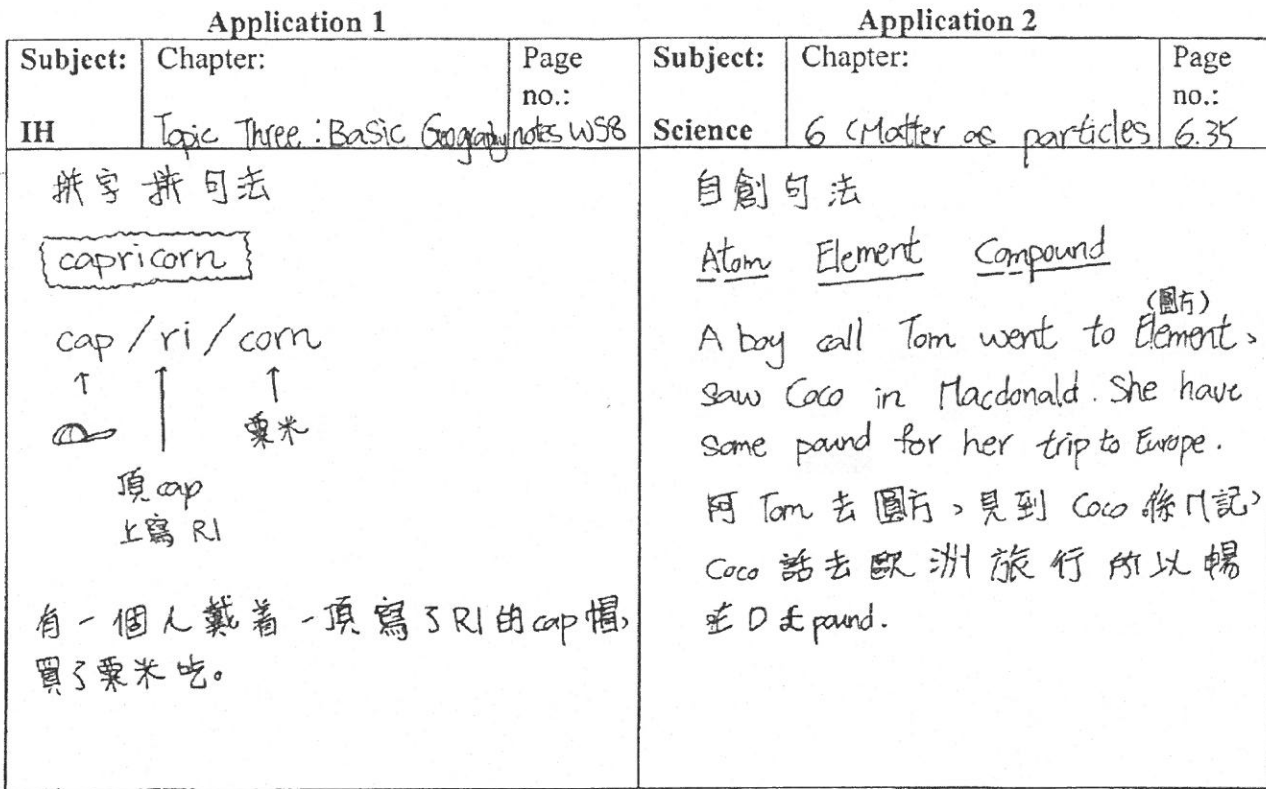 Application 1
Subject:
Chapter:
Page
no.:
IH
Topic Three : Basic Geography
notes WS8
拼字拼句法
capricorn
cap / ri / corn
粟米
頂 cap
上寫 RI
有一個人戴着一頂寫了RI的cap帽,
買了粟米吃。
Application 2
Subject:
Chapter:
Page
no.:
Science
6 (Matter as particles
6.35
自創句法
Atom Element Compound
(圓方)
A boy call Tom went to Element,
saw Coco in Macdonald. She have
some pound for her trip to Europe.
阿 Tom 去圓方,見到 Coco 係 M記,
Coco 話去歐洲旅行所以暢
D £ pound.